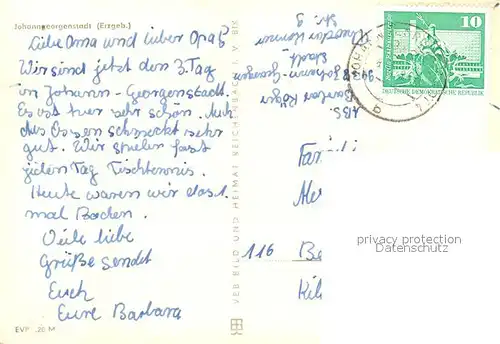 Johanngeorgenstadt (Erzgeb.)
Liebe Oma und lieber Opa!
Wir sind jetzt den 3. Tag
in Johann-Georgenstadt.
Es ist hier sehr schön. Auch
das Essen schmeckt sehr
gut. Wir spielen fast
jeden Tag Tischtennis.
Heute waren wir das 1.
mal Baden.
Viele liebe
Grüße sendet
Euch
Eure Barbara
EVP -,20 M
VEB BILD UND HEIMAT REICHENBACH I. V.
ABS.
Barbar
Johann-Georgen
stadt
Str. 9
10
DEUTSCHE DEMOKRATISCHE REPUBLIK
Fa
116 Be
privacy protection
Datenschutz